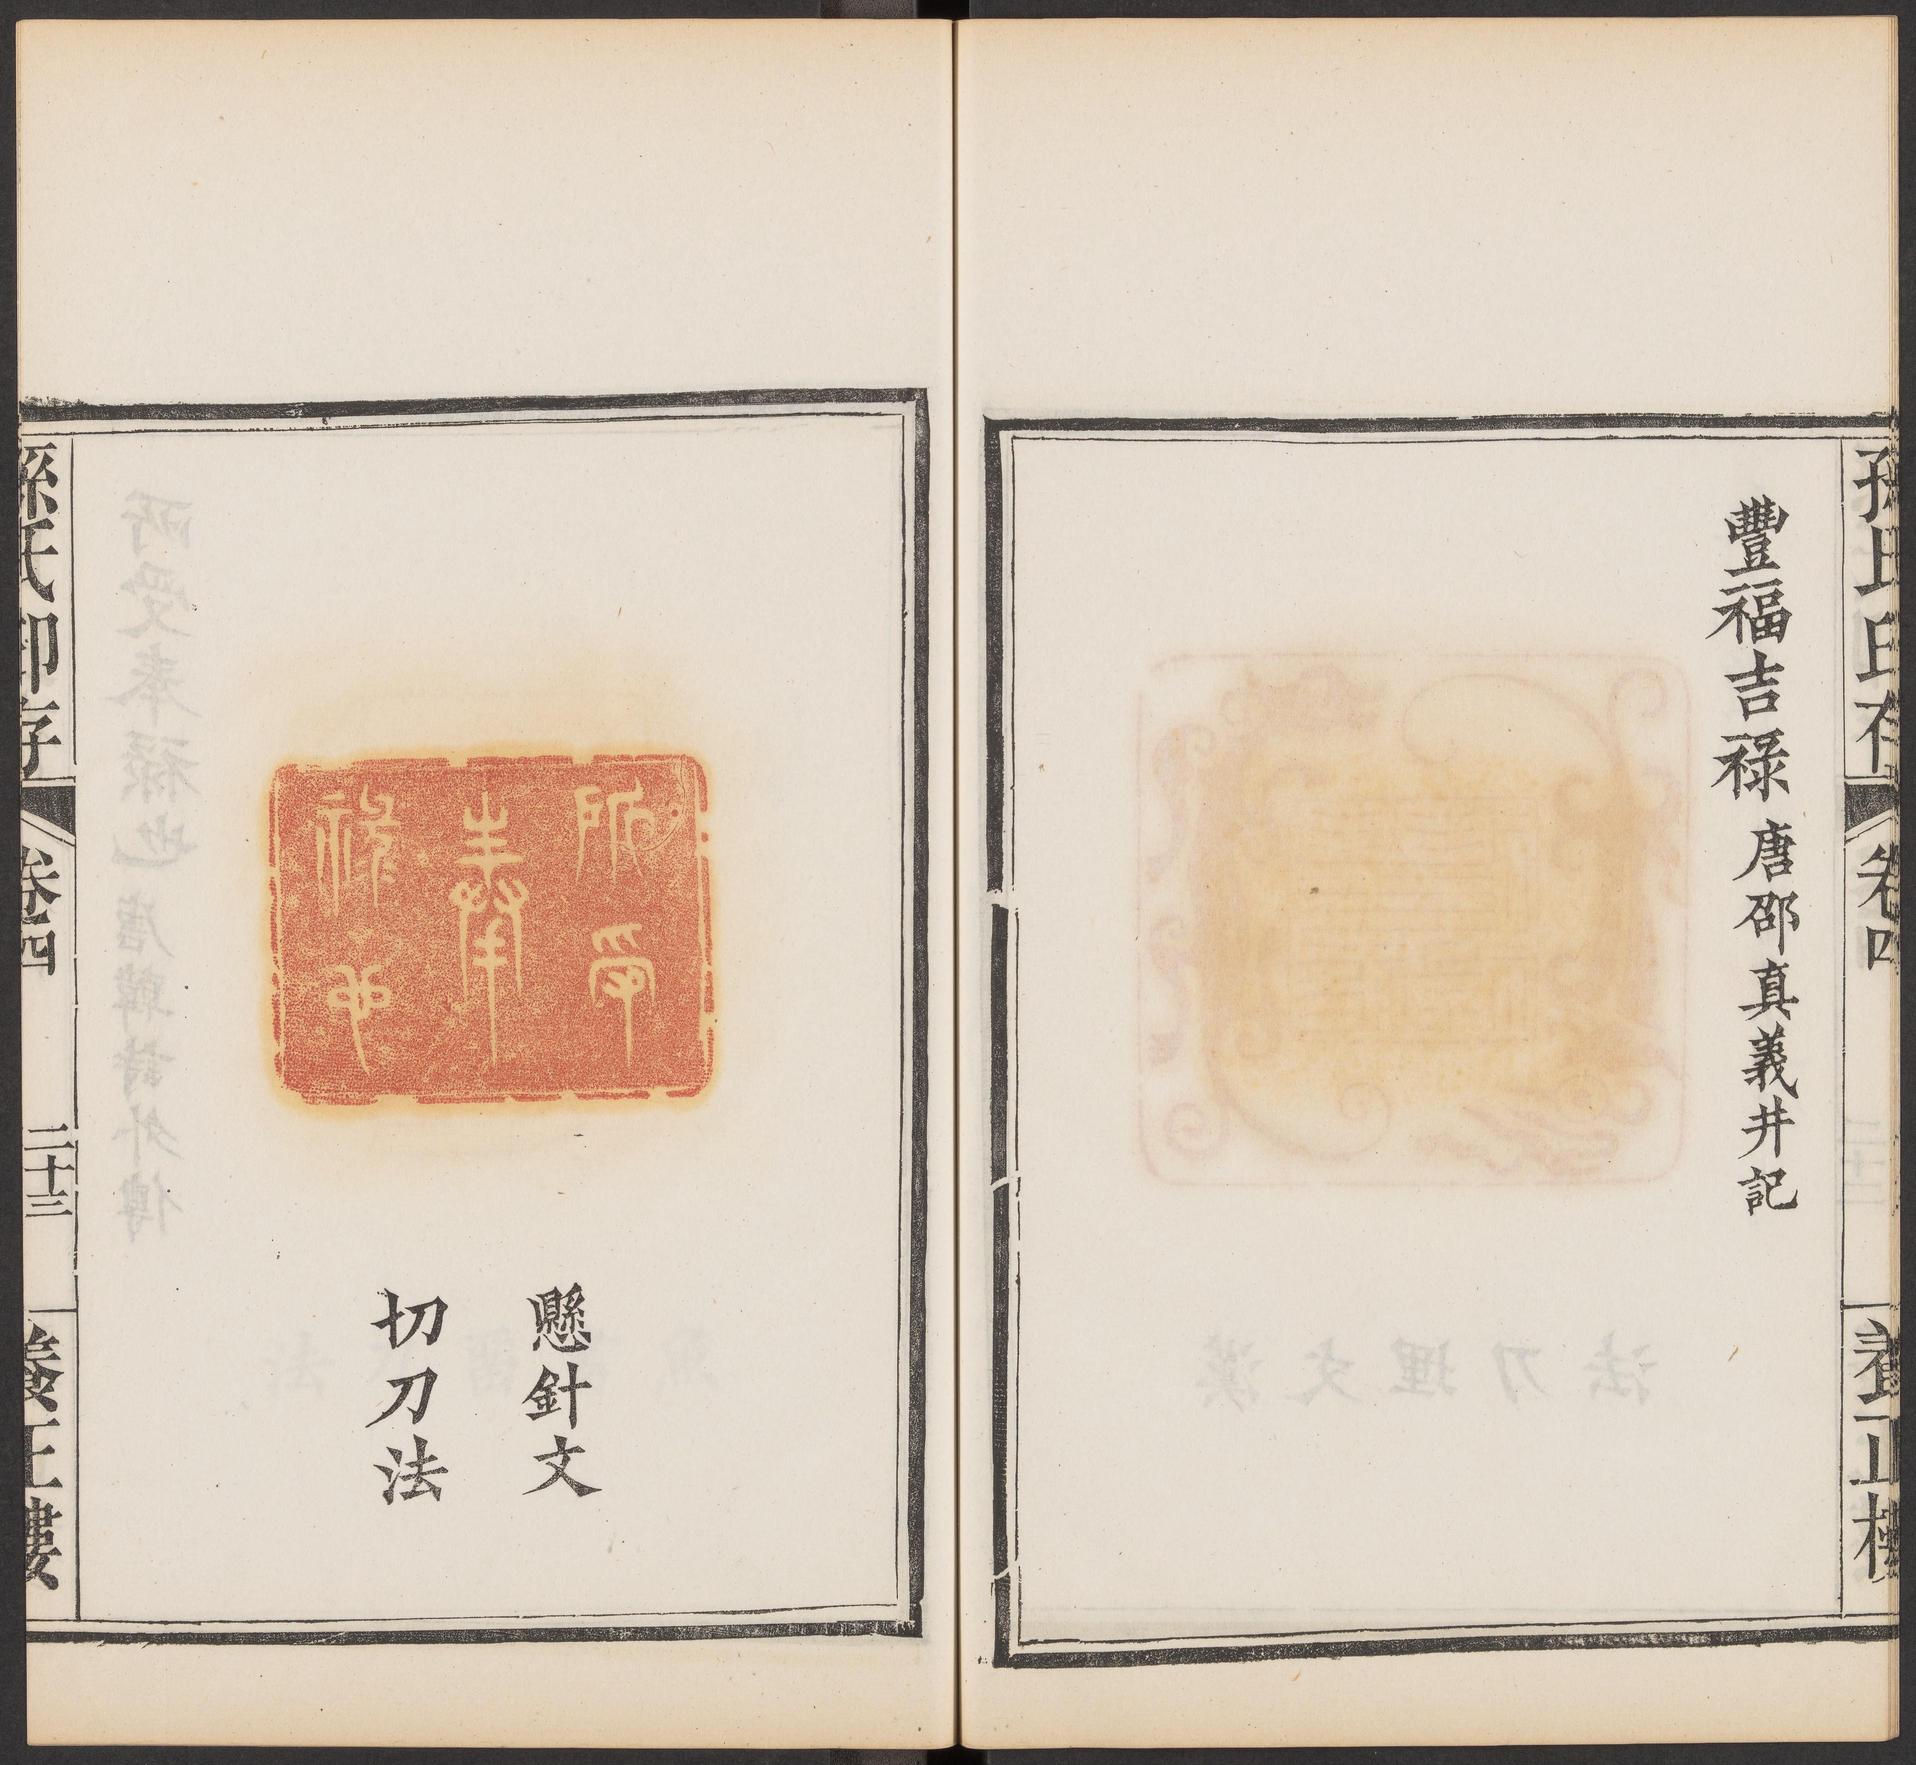 孫氏印存
卷四
養正樓
豐福吉祿 唐邵真義井記
所受
奉
祿也
懸針文
切刀法
孫氏印存
卷四
二十三
養正樓